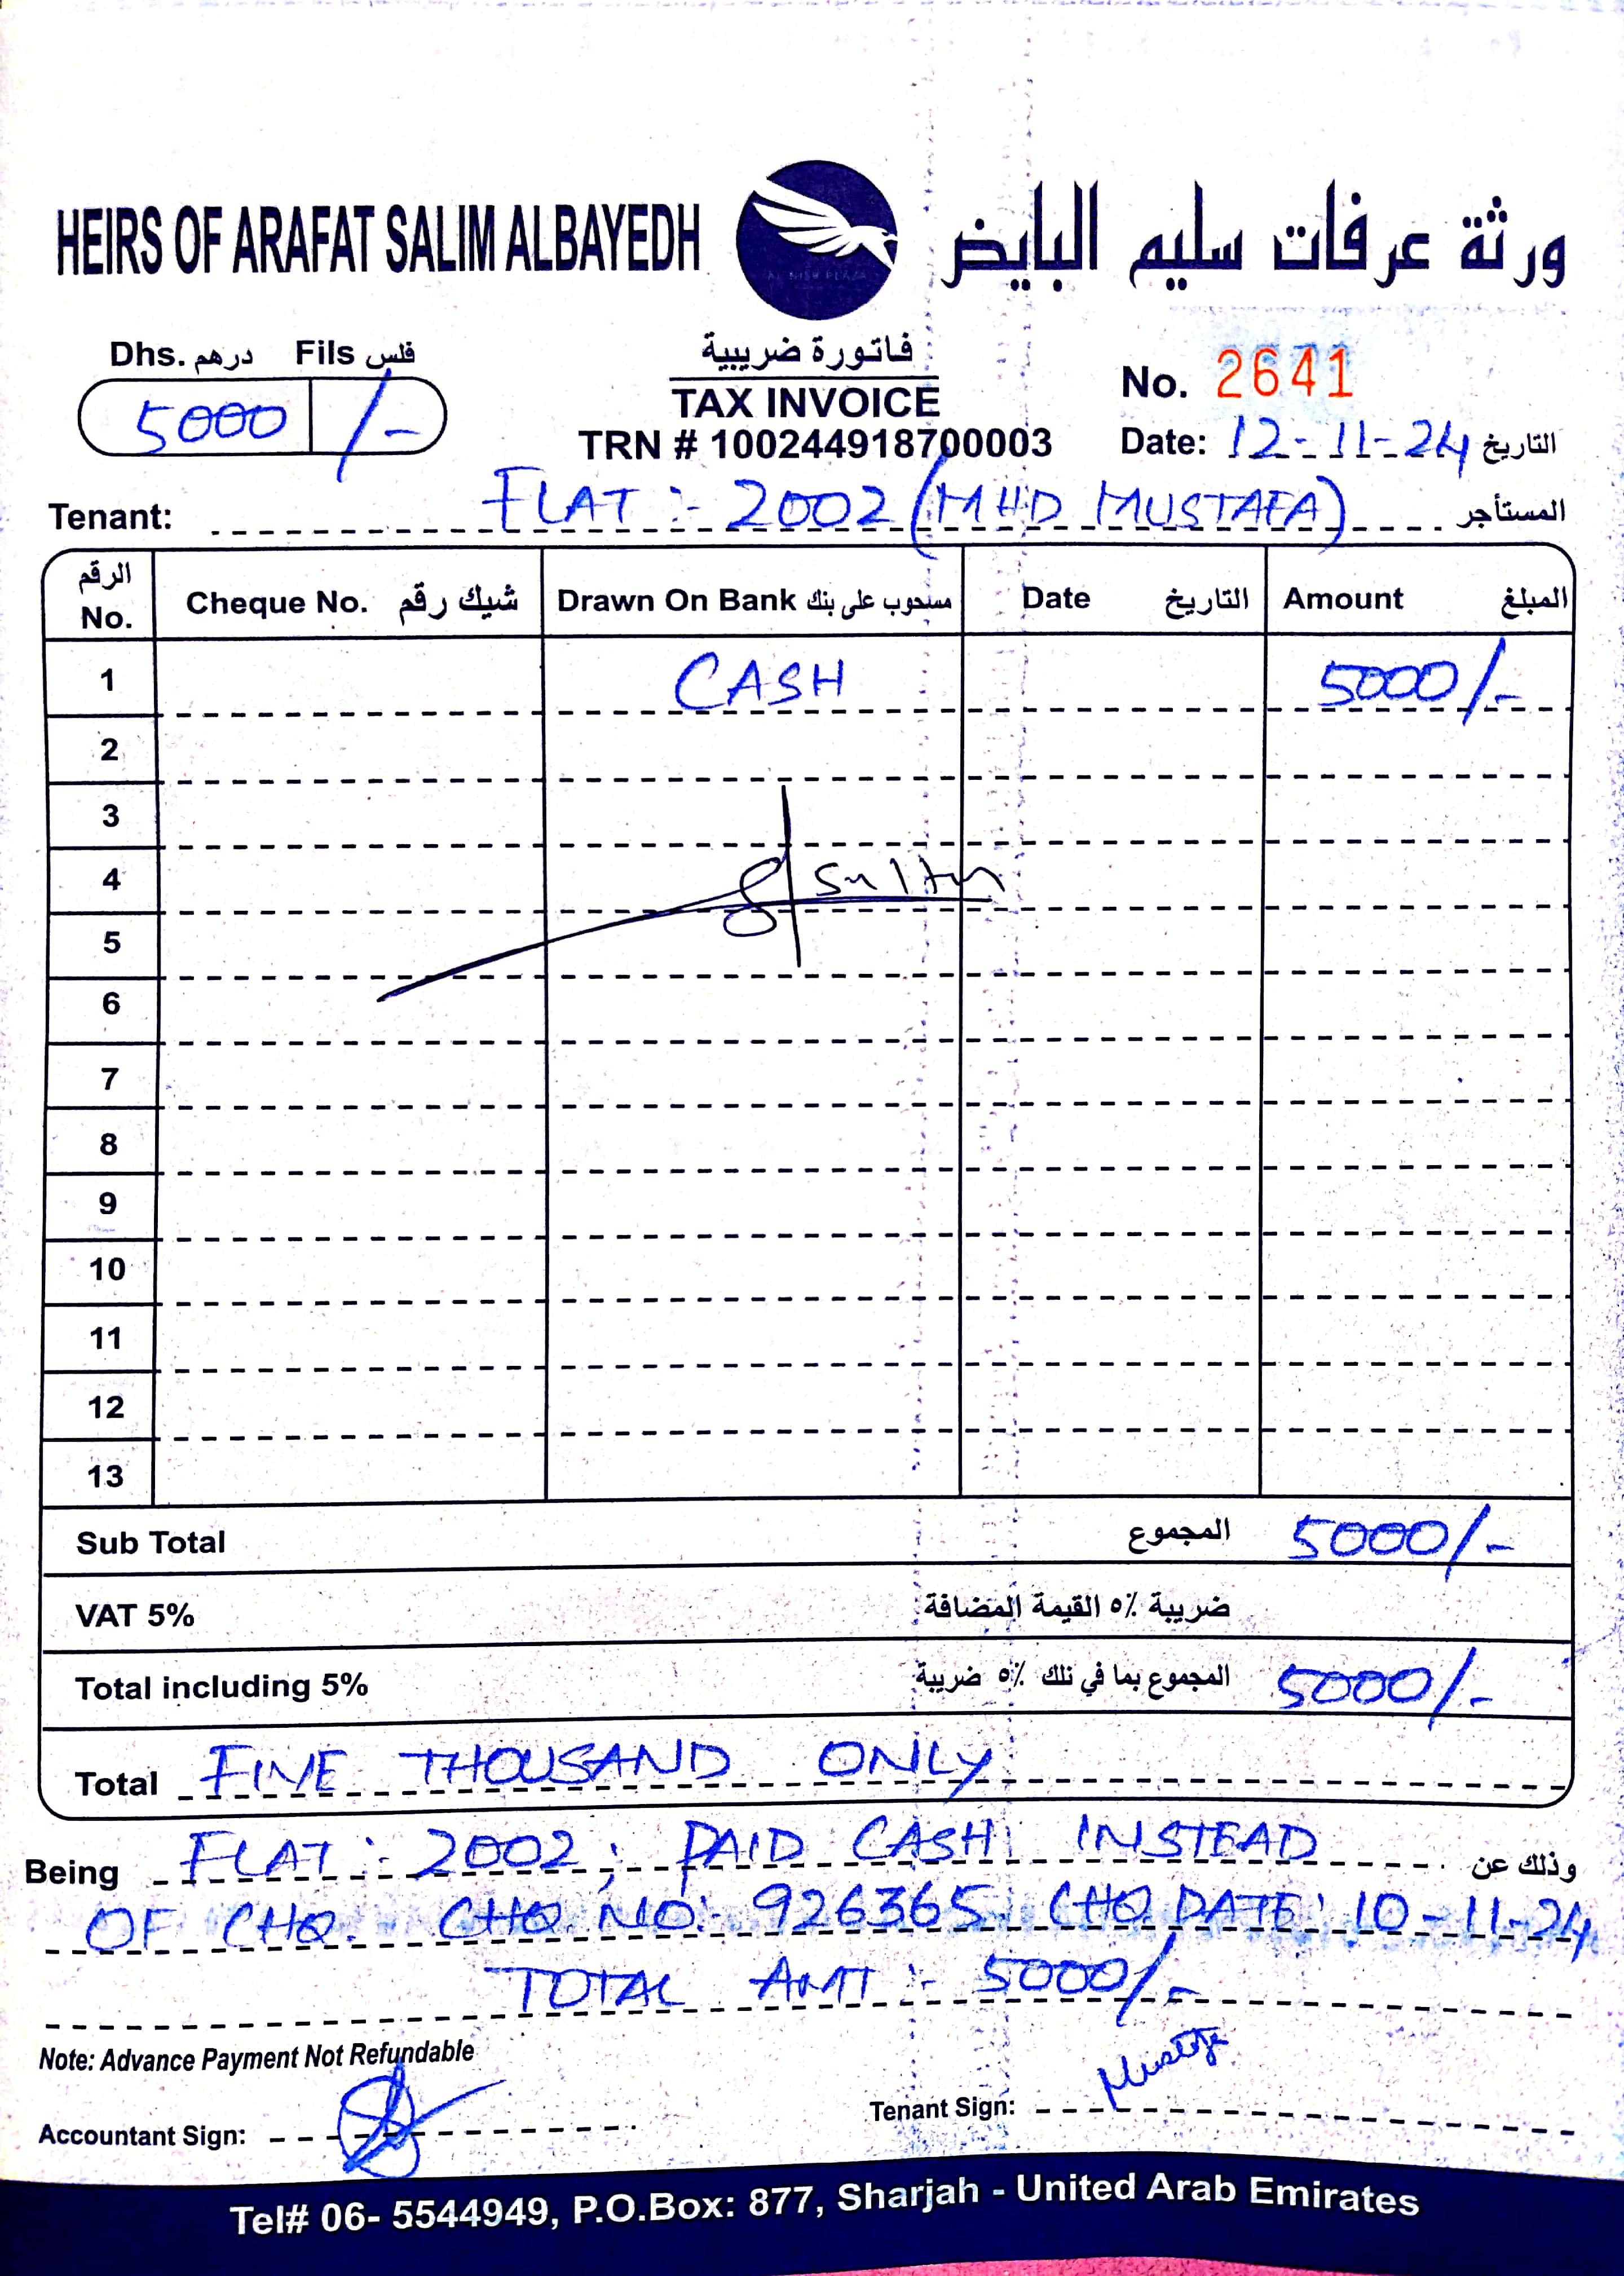 HEIRS OF ARAFAT SALIM ALBAYEDH ورثة عرفات سليم البايض
AL NISR PLAZA
Dhs. درهم Fils فلس
5000 /-
فاتورة ضريبية
TAX INVOICE
TRN # 100244918700003
No. 2641
Date: 12-11-24 التاريخ
Tenant: FLAT :- 2002 (MHD MUSTAFA) المستأجر
الرقم No. Cheque No. شيك رقم Drawn On Bank مسحوب على بنك Date التاريخ Amount المبلغ
1 CASH 5000/-
2
3
4 Sultan
5
6
7
8
9
10
11
12
13
Sub Total المجموع 5000/-
VAT 5% ضريبة ٥٪ القيمة المضافة
Total including 5% المجموع بما في نلك ٥٪ ضريبة 5000/-
Total FIVE THOUSAND ONLY
Being FLAT :- 2002, PAID CASH INSTEAD وذلك عن
OF CHQ. CHQ. NO:- 926365 CHQ DATE: 10-11-24
TOTAL AMT :- 5000/-
Note: Advance Payment Not Refundable
Accountant Sign: Tenant Sign: Mustafa
Tel# 06- 5544949, P.O.Box: 877, Sharjah - United Arab Emirates